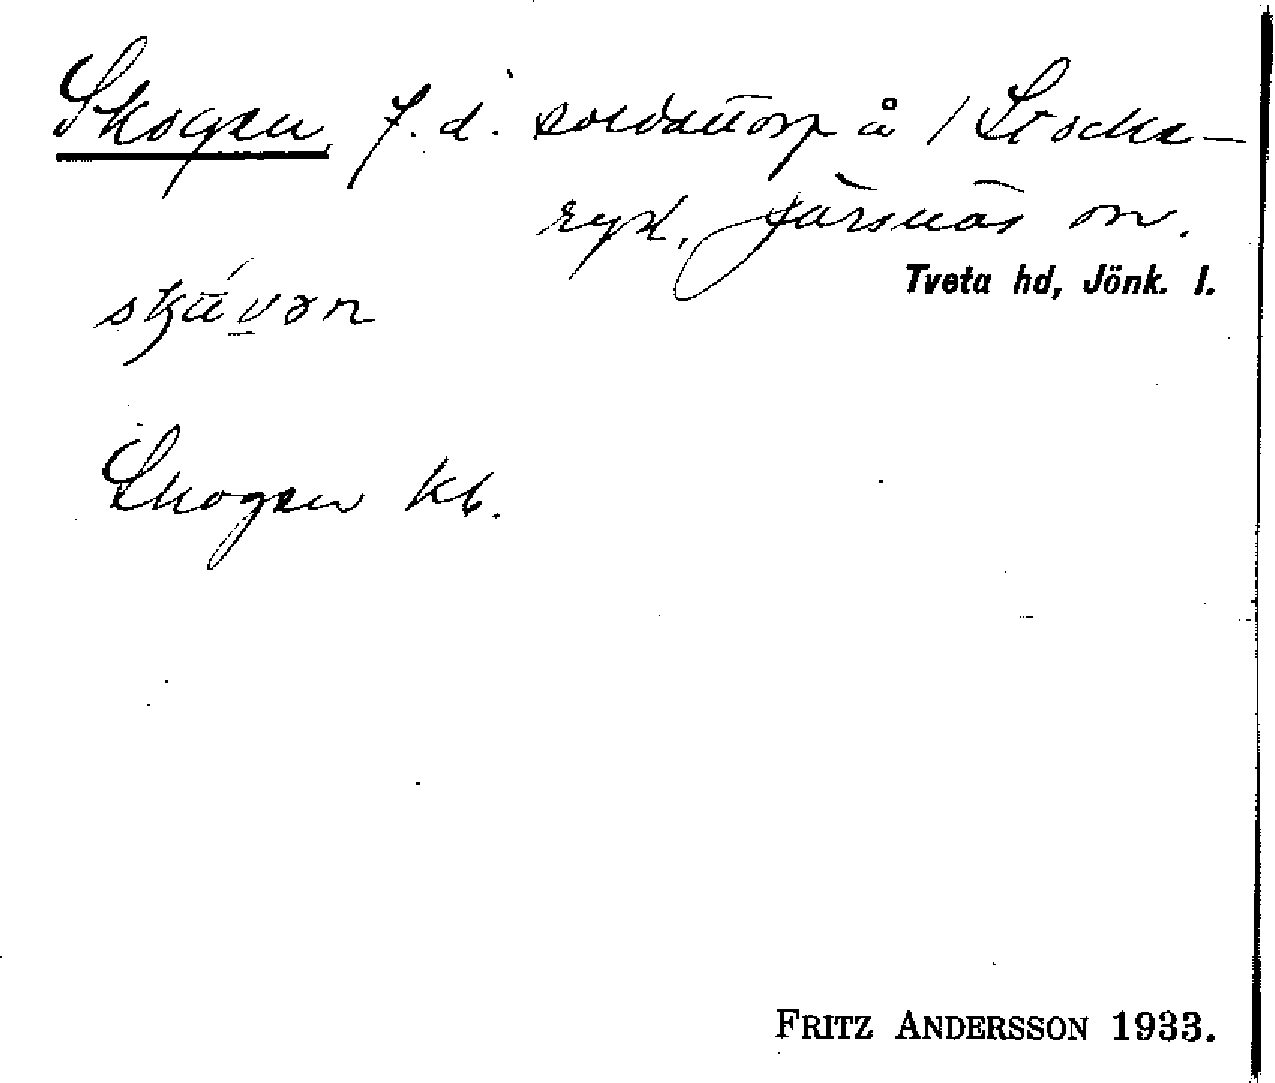 Skogen f.d. soldattorp å / Stocka-
ryd, Järsnäs sn.
Tveta hd, Jönk. l.
Skogen kb.
FRITZ ANDERSSON 1933.